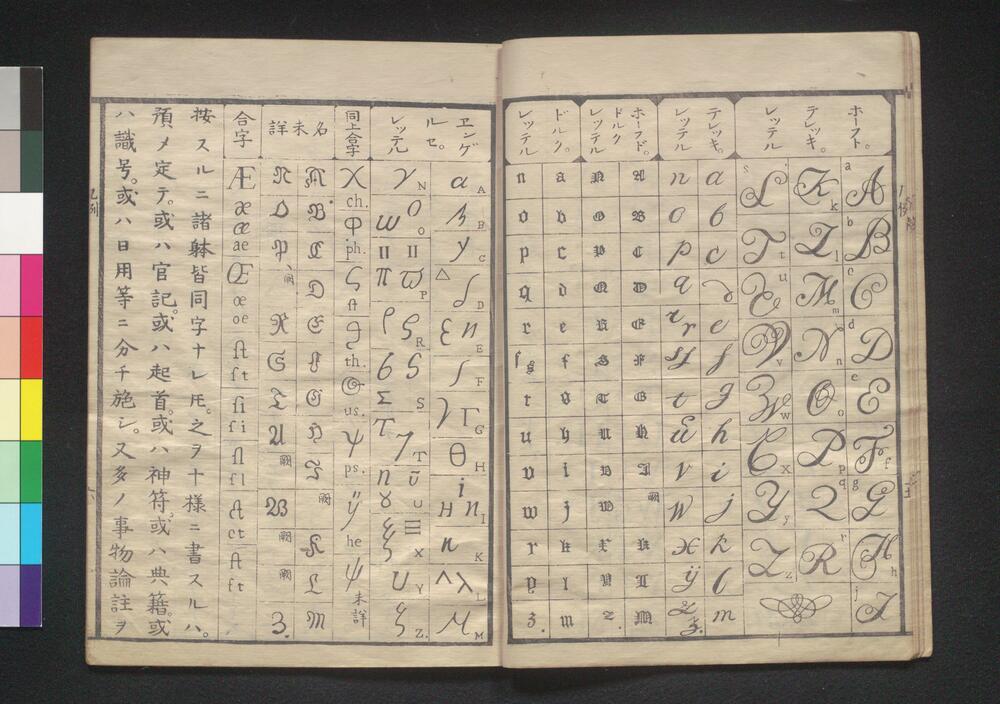 ホーフト。
テレッキ。
レッテル
A a
B b
C c
D d
E e
F f
G g
H h
J j
K k
L l
M m
N n
O o
P p
Q q
R r
S s
T t
U u
V v
W w
X x
Y y
Z z
テレッキ。
レッテル
a
b
c
d
e
f
g
h
i
j
k
l
m
n
o
p
q
r r
s s
t
u
v
w
x
ÿ
z z.
ホーフド。
ドルク
レッテル
A
B
C
D
E
F
G
H
I
闕
K
L
M
N
O
P
Q
R
S
T
U
V
W
X
Y
Z.
ドルク。
レッテル
a
b
c
d
e
f
g
h
i
j
k
l
m
n
o
p
q
r
ſ s
t
u
v
w
x
y
z.
ヱンゲ
ルセ。
レッテル
α A
B
y C
Δ D
Ɛ n E
ʃ F
γ Γ G
θ H
i H n I
n K
Λ λ L
M M
N
ω O O
π Π ϖ P
ρ R
6 S
Σ
T T
ū U
X
Y
Z.
同上拿字
X ch.
Φ ph.
th.
us.
ψ ps.
ÿ he
ψ 未詳
名未詳
A
B
C
D
E
F
G
H
I
闕
K
L
M
N
O
P
闕
R
S
T
U
闕
W
闕
闕
Z.
合字
Æ
æ
æ
ae
Œ
œ
oe
ſt
ſt
ſi
ſi
fl
fl
ct
ct
ft
ft
按スルニ諸躰皆同字ナレ𪜈。之ヲ十様ニ書スルハ。
預メ定テ。或ハ官記。或ハ起首。或ハ神符。或ハ典籍。或
ハ識号。或ハ日用等ニ分チ施シ。又多ノ事物論註ヲ
凡例